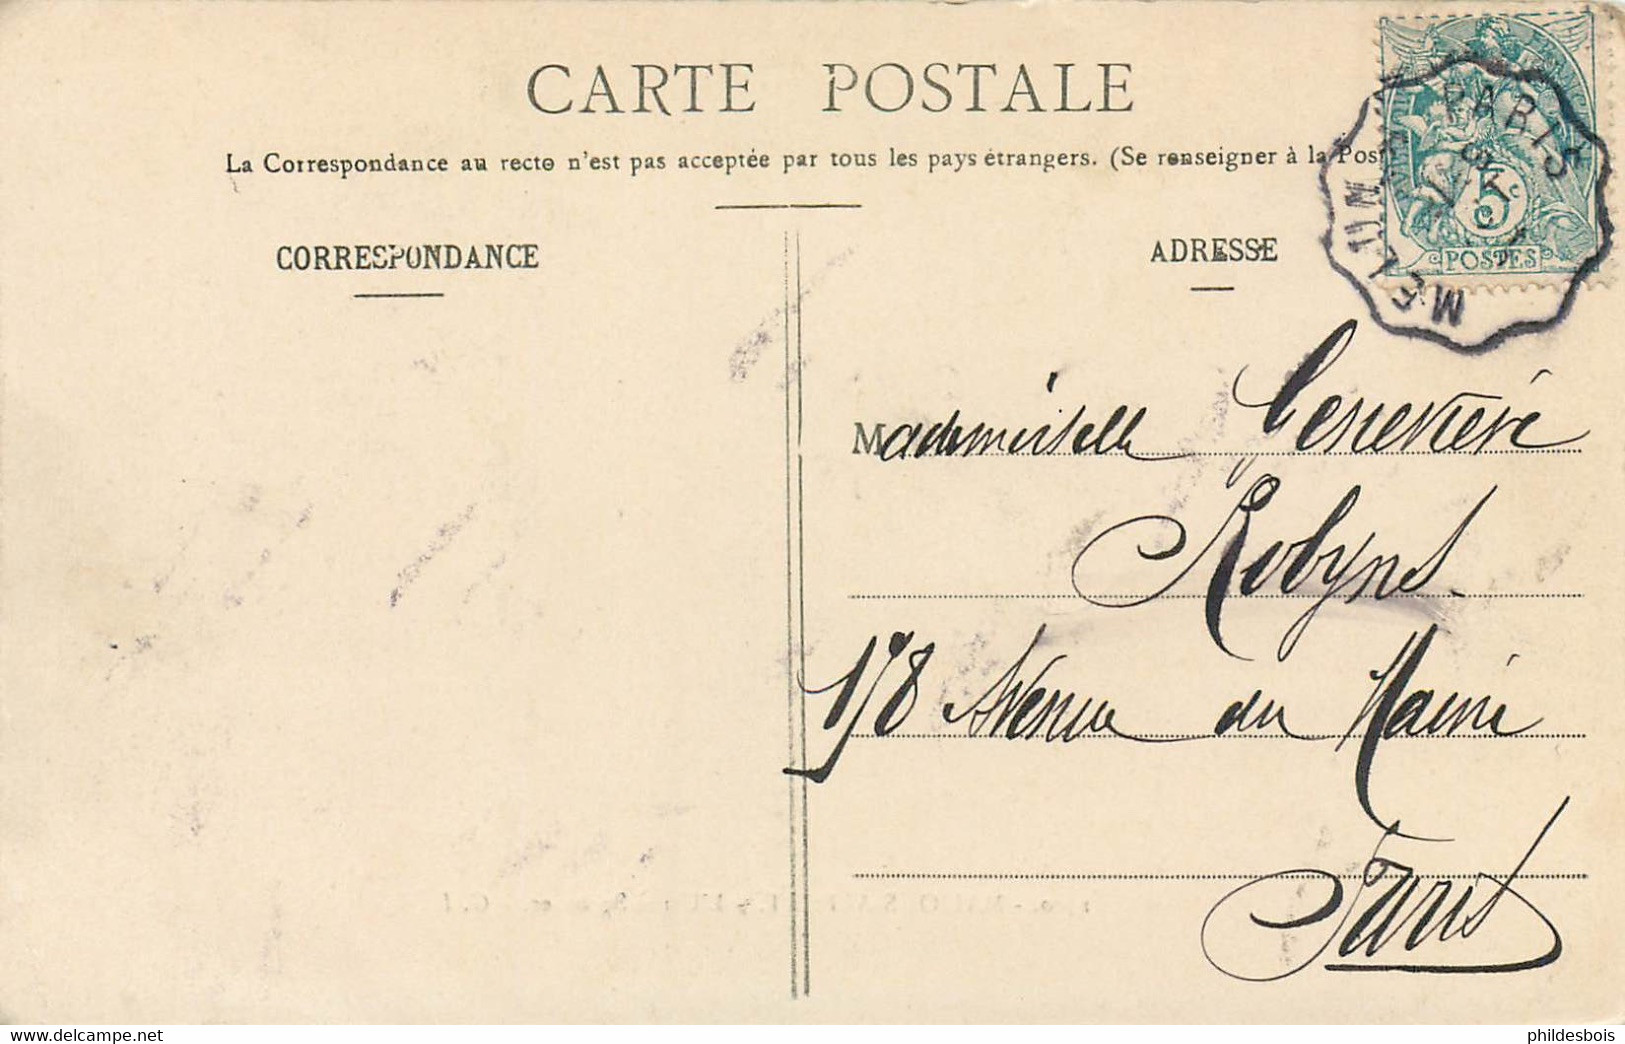 CARTE POSTALE
La Correspondance au recto n'est pas acceptée par tous les pays étrangers. (Se renseigner à la Post
CORRESPONDANCE
ADRESSE
PARIS
MELUN
5c
POSTES
Mademoiselle Geneviève
Robyns.
178 Avenue du Maine
Paris
www.delcampe.net
phildesbois